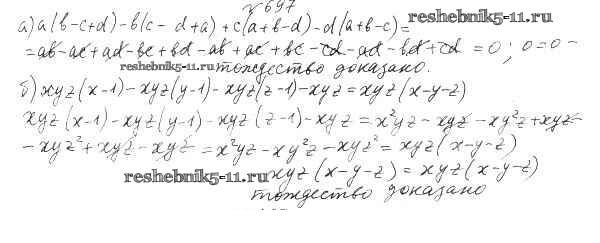 №697
а) a(b-c+d)-b(c-d+a)+c(a+b-d)-d(a+b-c)=
reshebnik5-11.ru
=ab-ac+ad-bc+bd-ab+ac+bc-cd-ad-bd+cd=0; 0=0 -
reshebnik5-11.ru
тождество доказано.
б) xyz(x-1)-xyz(y-1)-xyz(z-1)-xyz=xyz(x-y-z)
xyz(x-1)-xyz(y-1)-xyz(z-1)-xyz=x²yz-xyz-xy²z+xyz-
-xyz²+xyz-xyz=x²yz-xy²z-xyz²=xyz(x-y-z)
reshebnik5-11.ru
xyz(x-y-z)=xyz(x-y-z)
тождество доказано